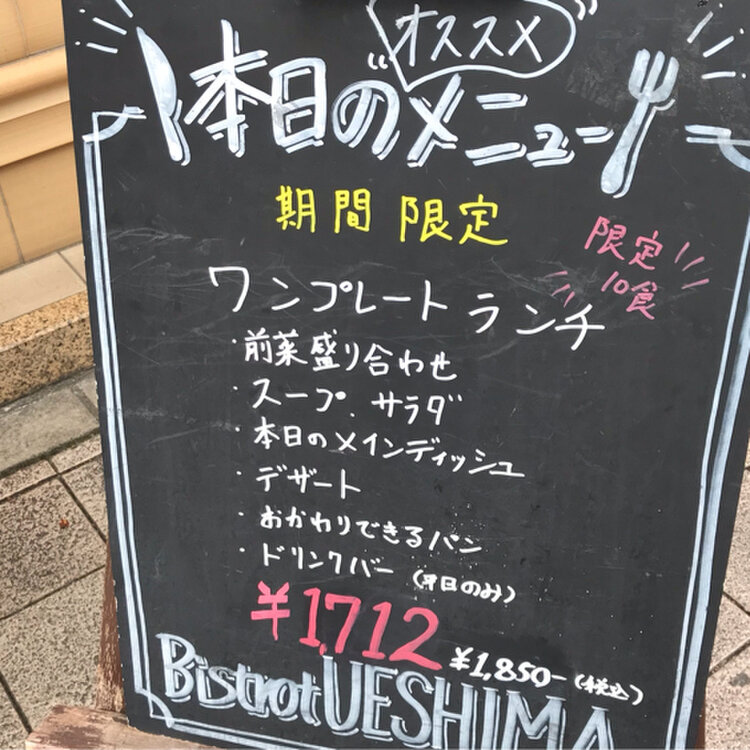 オススメ
本日のメニュー
期間 限定
限定
10食
ワンプレートランチ
・前菜盛り合わせ
・スープ、サラダ
・本日のメインディッシュ
・デザート
・おかわりできるパン
・ドリンクバー (平日のみ)
¥1,712 ¥1,850- (税込)
Bistrot UESHIMA